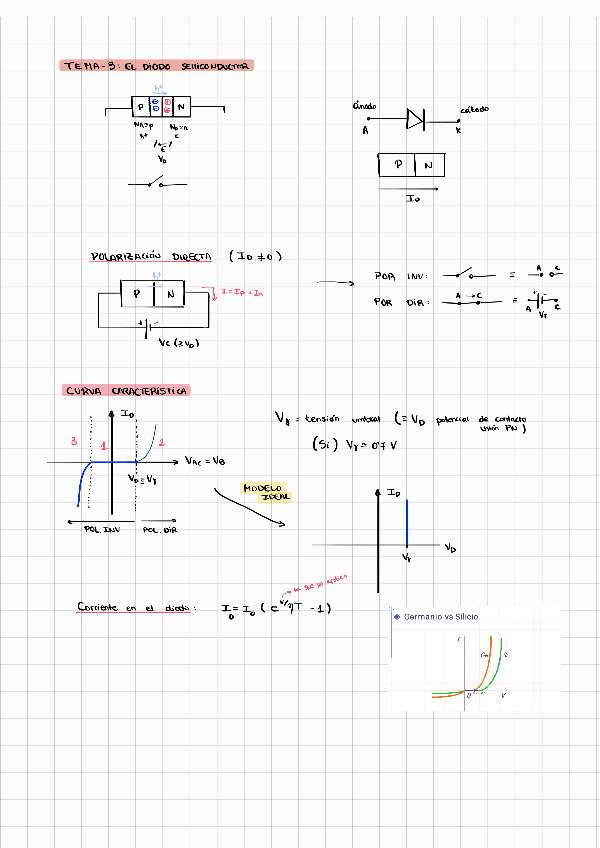 TEMA-3: EL DIODO SEMICONDUCTOR
h+
P N
NA≈p ND≈n
h+ e
E
VD
ánodo cátodo
A K
P N
ID
POLARIZACIÓN DIRECTA (ID ≠ 0)
h+
P N
I = Ip + In
+ -
VC (≥VD)
POR INV: = A C
POR DIR: A → C = A + - C
Vγ
CURVA CARACTERÍSTICA
ID
3 1 2
VAC = VB
VD ≥ Vγ
POL. INV POL. DIR
Vγ = tensión umbral (= VD potencial de contacto
unión PN)
(Si) Vγ = 0'7 V
MODELO
IDEAL
ID
VD
Vγ
Corriente en el diodo: ID = I0 (e^V/ηT - 1)
Germanio vs Silicio
I
Ge Si
0 V